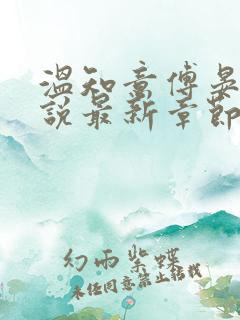 温知意傅晏
说最新章节
幻雨紫蝶
未经同意禁止转载